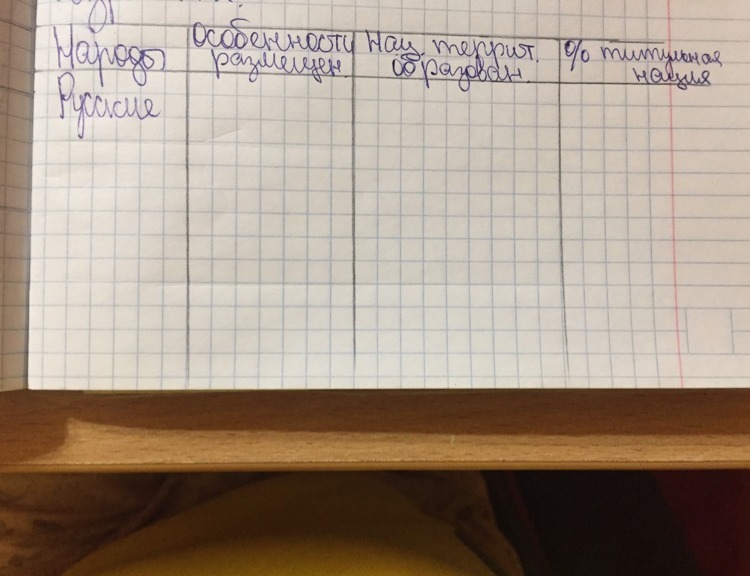 Народы
Особенности
размещен.
Нац. террит.
образован.
% титульная
нация
Русские